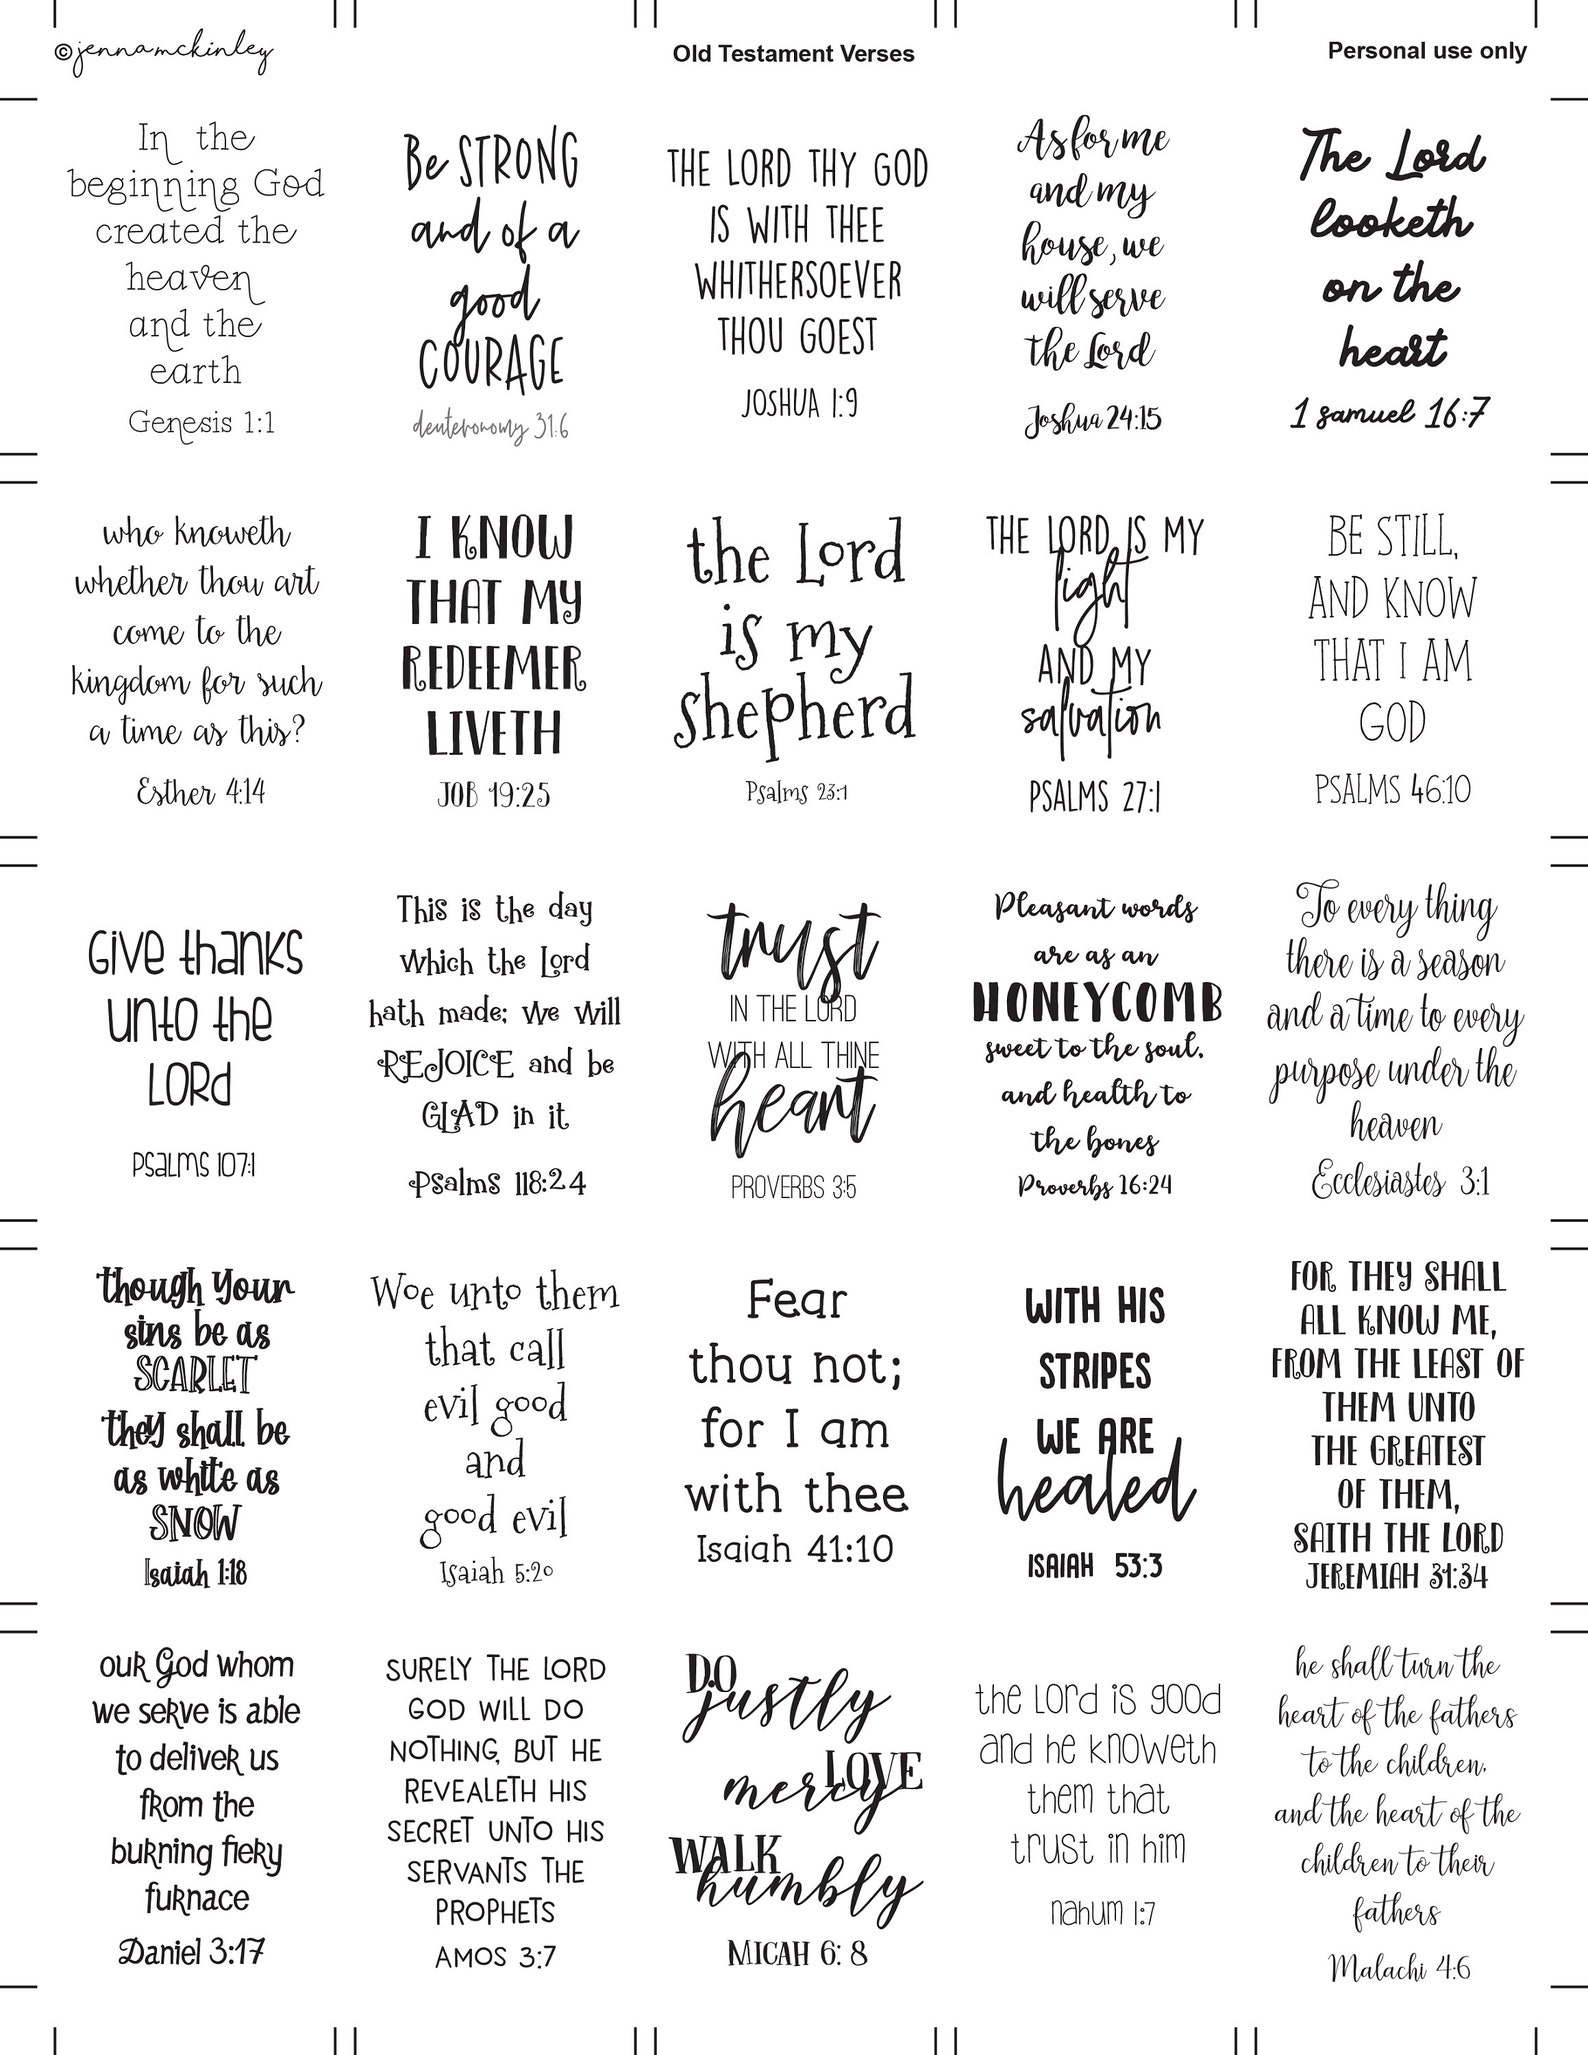 ©jennamckinley
Old Testament Verses
Personal use only
In the
beginning God
created the
heaven
and the
earth
Genesis 1:1
Be STRONG
and of a
good
COURAGE
deuteronomy 31:6
THE LORD THY GOD
IS WITH THEE
WHITHERSOEVER
THOU GOEST
JOSHUA 1:9
As for me
and my
house, we
will serve
the Lord
Joshua 24:15
The Lord
looketh
on the
heart
1 samuel 16:7
who knoweth
whether thou art
come to the
kingdom for such
a time as this?
Esther 4:14
I KNOW
THAT MY
REDEEMER
LIVETH
JOB 19:25
the Lord
is my
shepherd
Psalms 23:1
THE LORD IS MY
light
AND MY
salvation
PSALMS 27:1
BE STILL,
AND KNOW
THAT I AM
GOD
PSALMS 46:10
Give thanks
unto the
LORD
Psalms 107:1
This is the day
which the Lord
hath made; we will
REJOICE and be
GLAD in it
Psalms 118:24
trust
IN THE LORD
WITH ALL THINE
heart
PROVERBS 3:5
Pleasant words
are as an
HONEYCOMB
sweet to the soul,
and health to
the bones
Proverbs 16:24
To every thing
there is a season
and a time to every
purpose under the
heaven
Ecclesiastes 3:1
though your
sins be as
SCARLET
they shall be
as white as
SNOW
Isaiah 1:18
Woe unto them
that call
evil good
and
good evil
Isaiah 5:20
Fear
thou not;
for I am
with thee
Isaiah 41:10
WITH HIS
STRIPES
WE ARE
healed
ISAIAH 53:3
FOR THEY SHALL
ALL KNOW ME,
FROM THE LEAST OF
THEM UNTO
THE GREATEST
OF THEM,
SAITH THE LORD
JEREMIAH 31:34
our God whom
we serve is able
to deliver us
from the
burning fiery
furnace
Daniel 3:17
SURELY THE LORD
GOD WILL DO
NOTHING, BUT HE
REVEALETH HIS
SECRET UNTO HIS
SERVANTS THE
PROPHETS
AMOS 3:7
DO
justly
LOVE
mercy
WALK
humbly
MICAH 6: 8
the Lord is good
and he knoweth
them that
trust in him
nahum 1:7
he shall turn the
heart of the fathers
to the children,
and the heart of the
children to their
fathers
Malachi 4:6